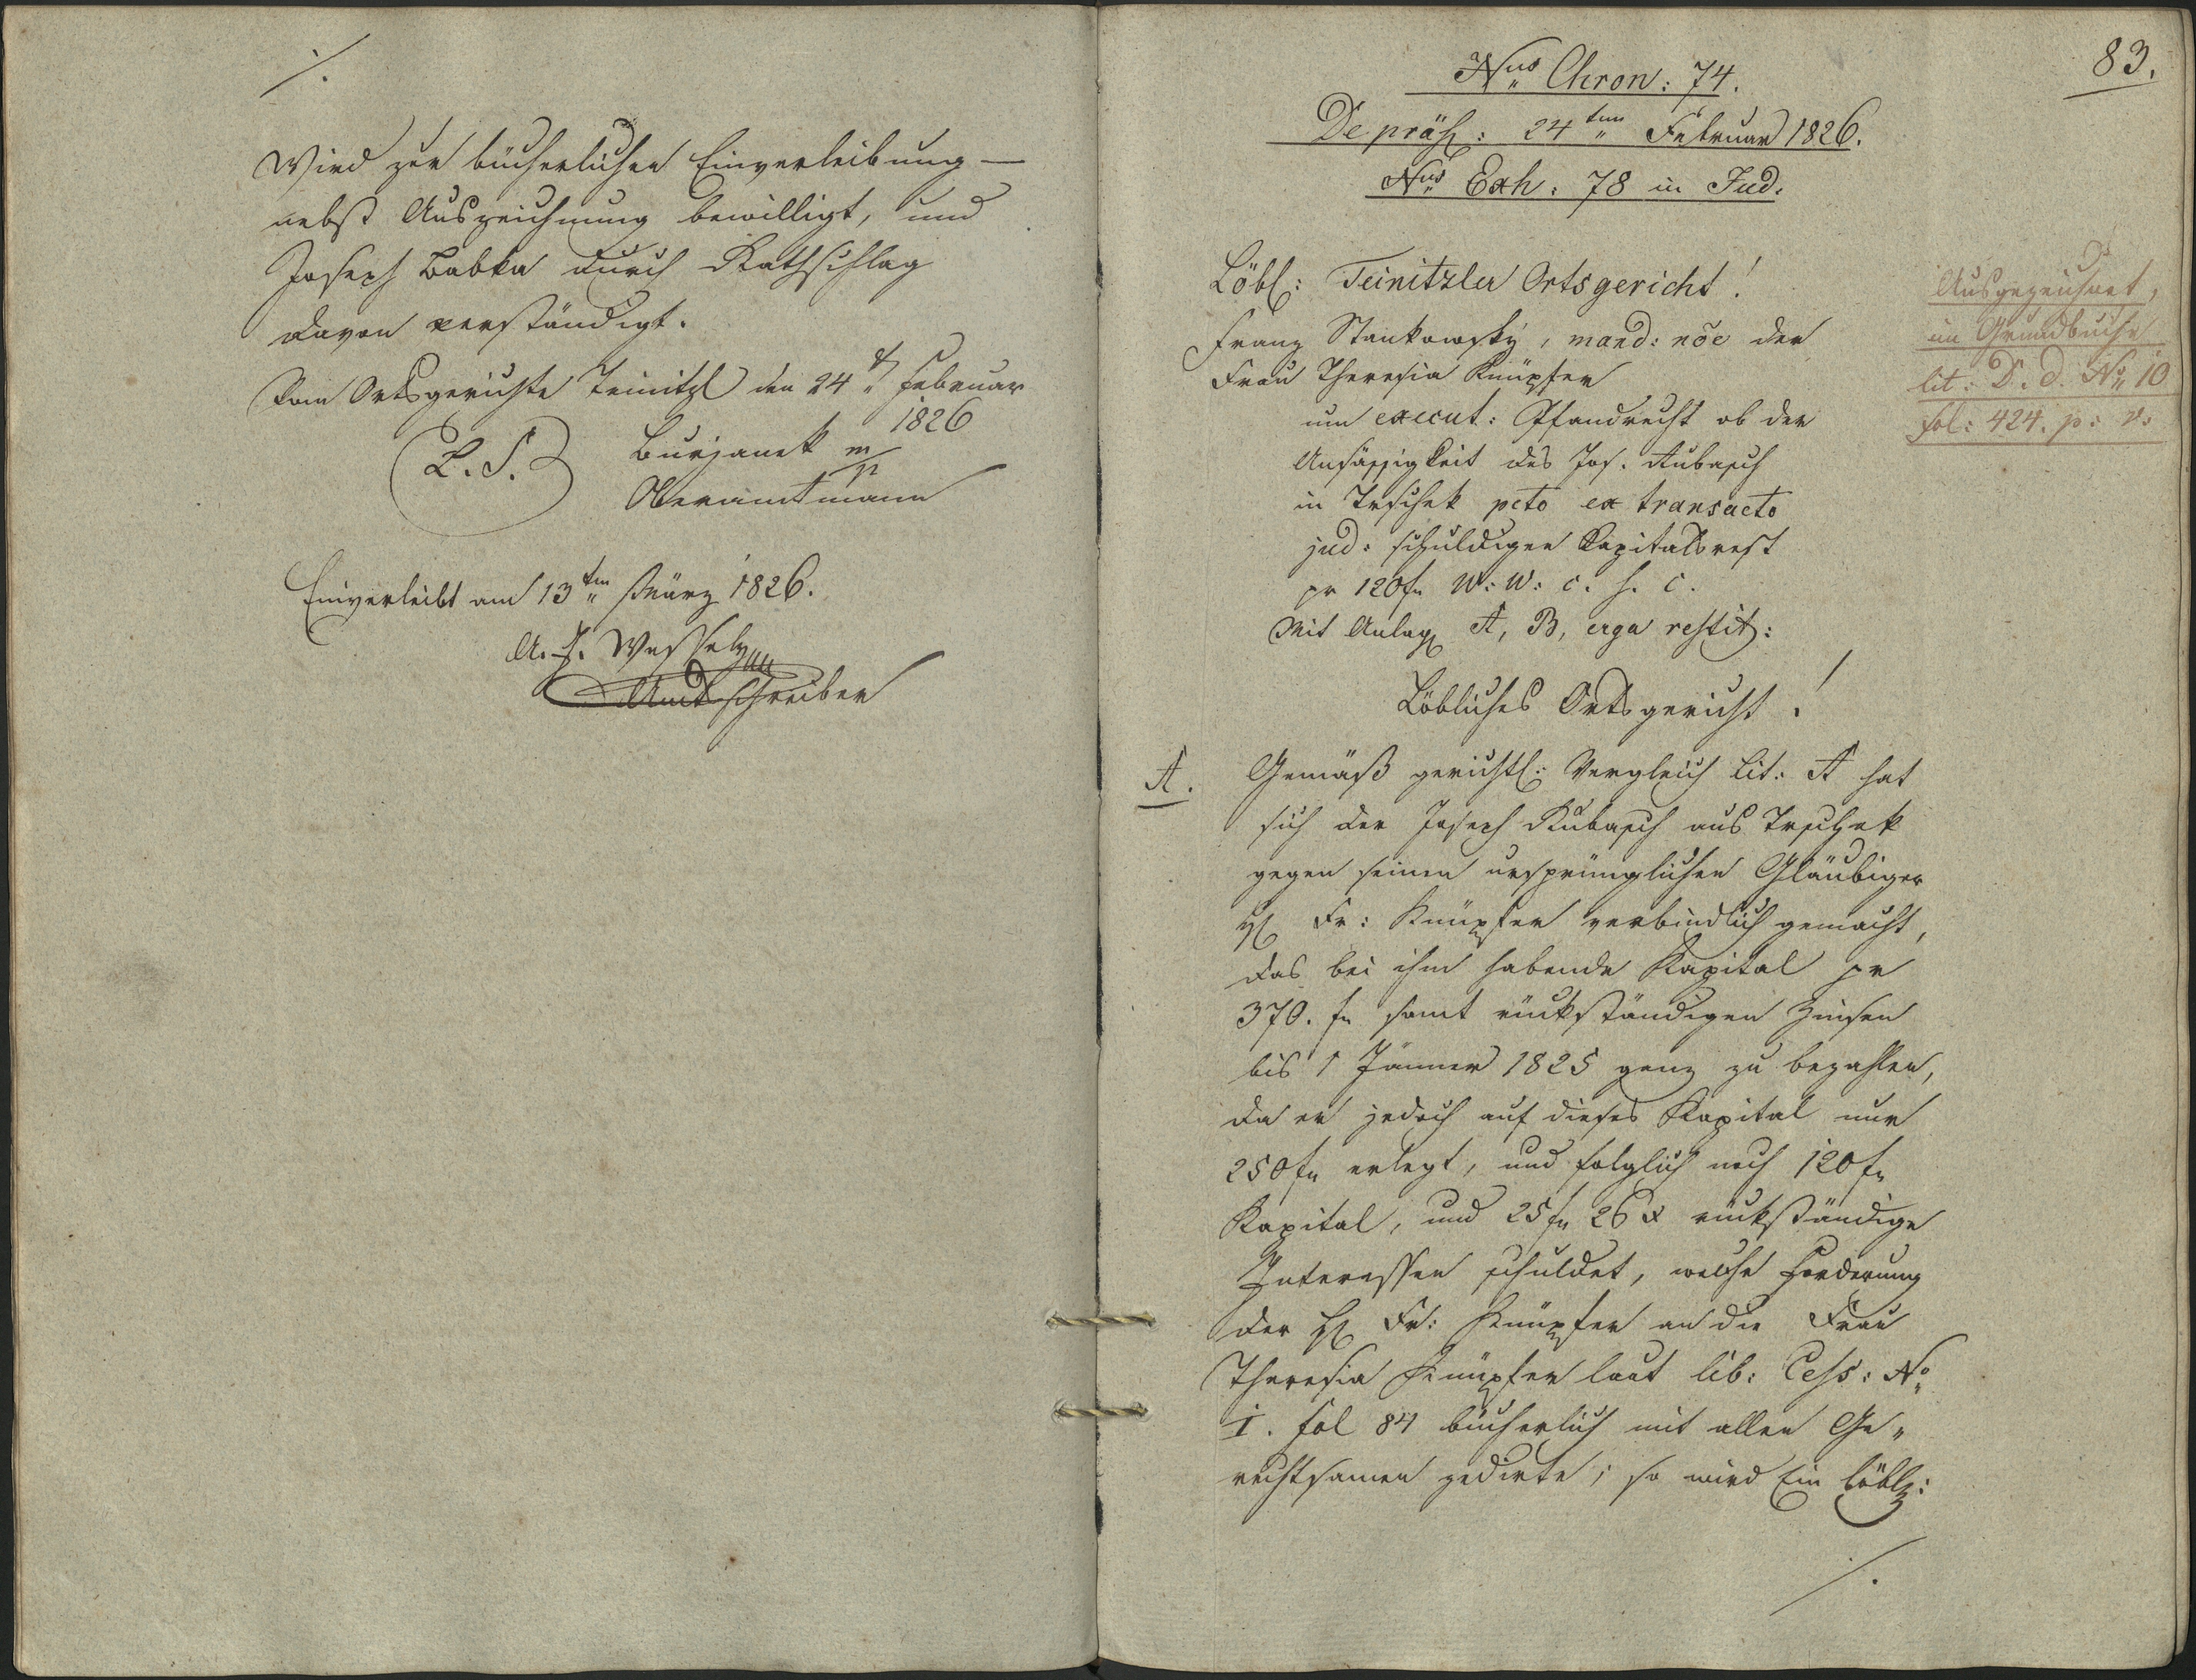 Wird zur bücherlichen Einverleibung —
nebst Auszeichnung bewilligt, und
Joseph Babka durch Rathschlag
davon verständigt.
Vom Ortsgerichte Teinitzl den 24t Februar
1826
L. S. Burjanek m/p
Oberamtmann
Einverleibt am 13ten März 1826.
A. J. Wessely
Amtsschreiber
83.
Nus Chron: 74.
De präs: 24ten Februar 1826.
Nus Exh: 78 in Jud.
Löbl: Teinitzler Ortsgericht!
Franz Stankowsky, mand: nõe der
Frau Theresia Knüpfer
um execut: Pfandrecht ob der
Ansässigkeit des Jos. Kubasch
in Trschek pcto ex transacto
jud: schuldigen Kapitalsrest
pr 120 fr W: W: c. s. c.
Mit Anlag A, B, erga restit:
Ausgezeichnet,
im Grundbuche
lit: D. d. No 10
fol: 424. p: v.
Löbliches Ortsgericht!
A. Gemäß gerichtl: Vergleich Lit: A hat
sich der Joseph Kubasch aus Trschek
gegen seinen ursprünglichen Gläubiger
H Fr: Knüpfer verbindlich gemacht,
das bei ihm habende Kapital pr
370. fr samt rückständigen Zinsen
bis 1 Jänner 1825 ganz zu bezahlen,
da er jedoch auf dieses Kapital nur
250 fr erlegt, und folglich noch 120 fr
Kapital, und 25 fr 26 x rückständige
Interessen schuldet, welche Forderung
der H Fr: Knüpfer an die Frau
Theresia Knüpfer laut lib: Cess: No
I. fol 84 bücherlich mit allen Ge„
rechtsamen zedirte; so wird Ein löbl: